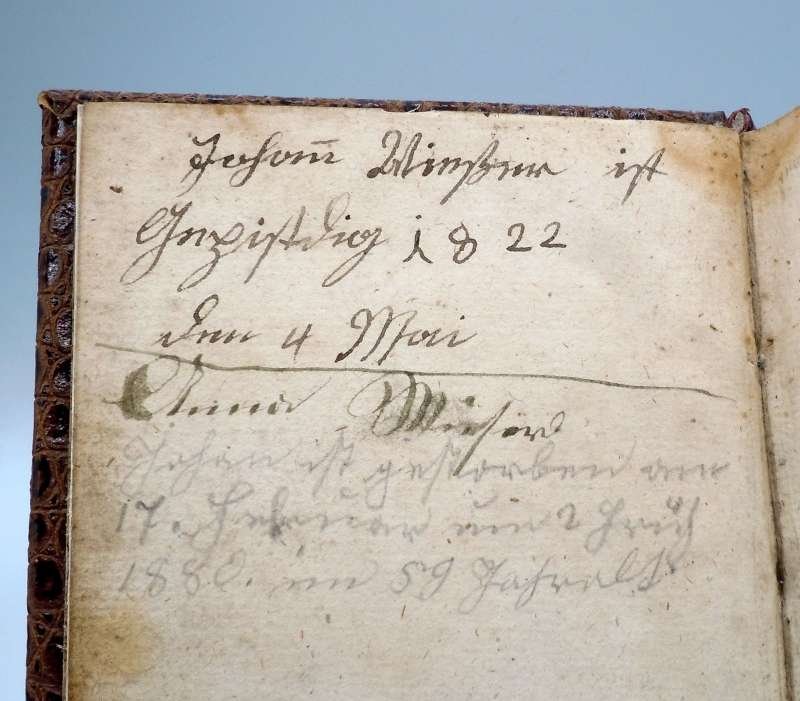 Johan̄ Wießer ist
Gepistdig 1822
den 4 Mai
Anna Wieser
Johan ist gestorben am
17. Februar um 2 Früh
1880. im 59 Jahralt